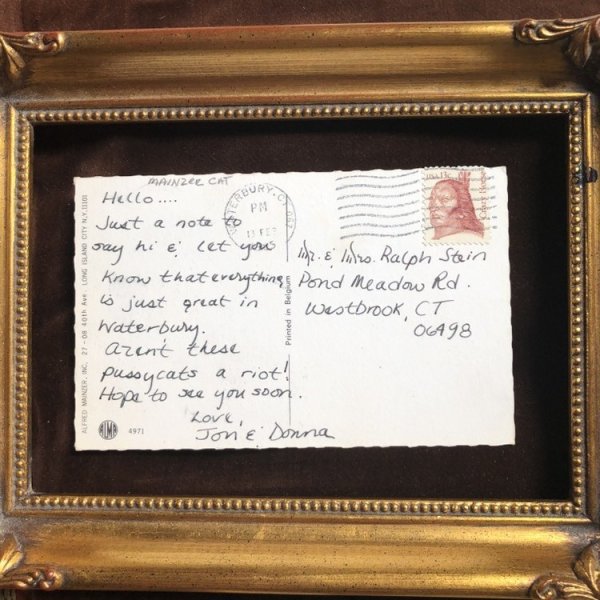 MAINZER CAT
Hello....
Just a note to
say hi & let you
know that everything
is just great in
Waterbury.
Aren't these
pussycats a riot!
Hope to see you soon.
Love,
Jon & Donna
ALFRED MAINZER, INC. 27-08 40th Ave., LONG ISLAND CITY N.Y. 11101
ALMA
4971
Printed in Belgium
WATERBURY, CT 067
PM
13 FEB
USA 13c
Mr. & Mrs. Ralph Stein
Pond Meadow Rd.
Westbrook, CT
06498